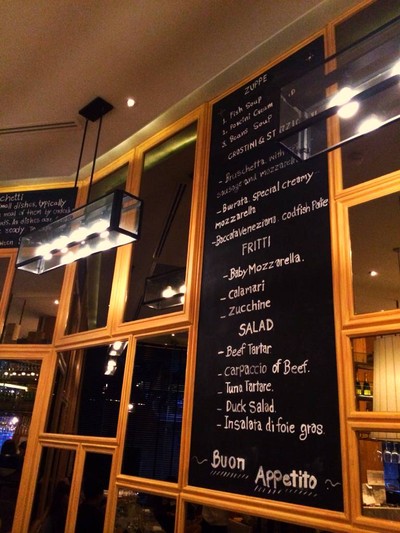 chetti
ZUPPE
1. Fish Soup
2. Porcini Cream
3. Beans Soup
CROSTINI & ST
- Bruschetta with
sausage and mozzarella
- Burrata, special creamy
mozzarella
- Baccala Veneziana, codfish Pate
FRITTI
- Baby Mozzarella.
- Calamari
- Zucchine
SALAD
- Beef Tartar
- Carpaccio of Beef.
- Tuna Tartare.
- Duck Salad.
- Insalata di foie gras.
~ Buon
Appetito ~